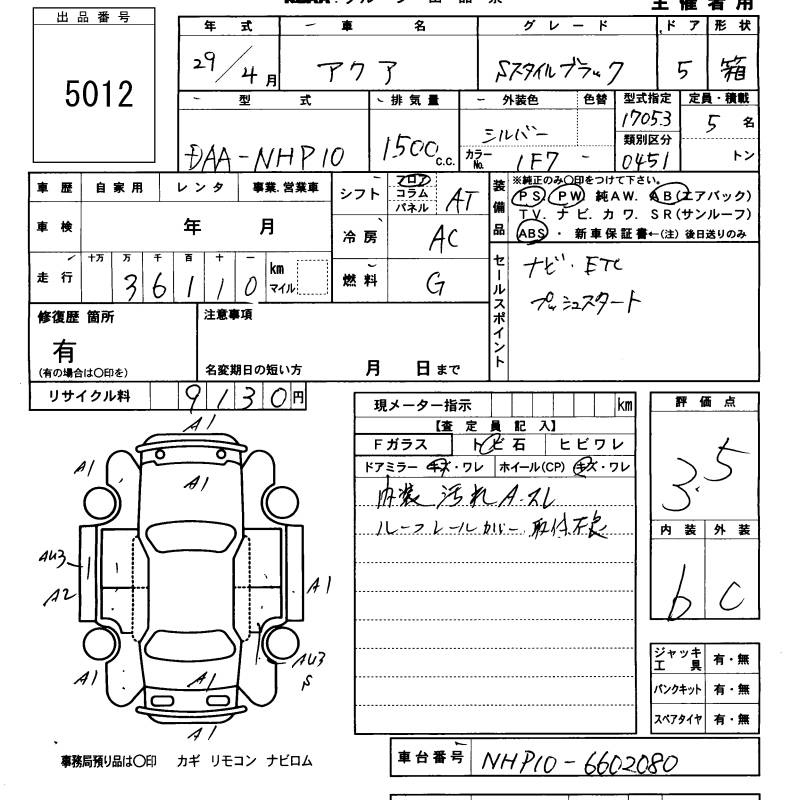 主催者用
出品番号
5012
年式 車名 グレード ドア 形状
29/4月 アクア Sスタイルブラック 5 箱
型式 排気量 外装色 色替 型式指定 定員・積載
DAA-NHP10 1500c.c. シルバー 17053 5名
カラーNo. 1F7 - 類別区分 0451 トン
車歴 自家用 レンタ 事業.営業車
車検 年 月
走行 十万 万 千 百 十 一 km マイル
36110
シフト フロア コラム パネル AT
冷房 AC
燃料 G
装備品
※純正のみ〇印をつけて下さい。
PS PW 純AW. AB(エアバック)
TV. ナビ. カワ. SR(サンルーフ)
ABS・新車保証書←(注)後日送りのみ
セールスポイント
ナビ・ETC
プッシュスタート
修復歴 箇所
有
(有の場合は〇印を)
注意事項
名変期日の短い方 月 日まで
リサイクル料 9130円
現メーター指示 km
【査定員記入】
Fガラス トビ石 ヒビワレ
ドアミラー キズ・ワレ ホイール(CP) キズ・ワレ
内装 汚れ A.スレ
ルーフレールカバー 取付不良
評価点
3.5
内装 外装
b C
ジャッキ工具 有・無
パンクキット 有・無
スペアタイヤ 有・無
A1
A1
A1
A1
AU3
A2
A1
AU3
S
A1
A1
A1
事務局預り品は〇印 カギ リモコン ナビロム
車台番号 NHP10-6602080